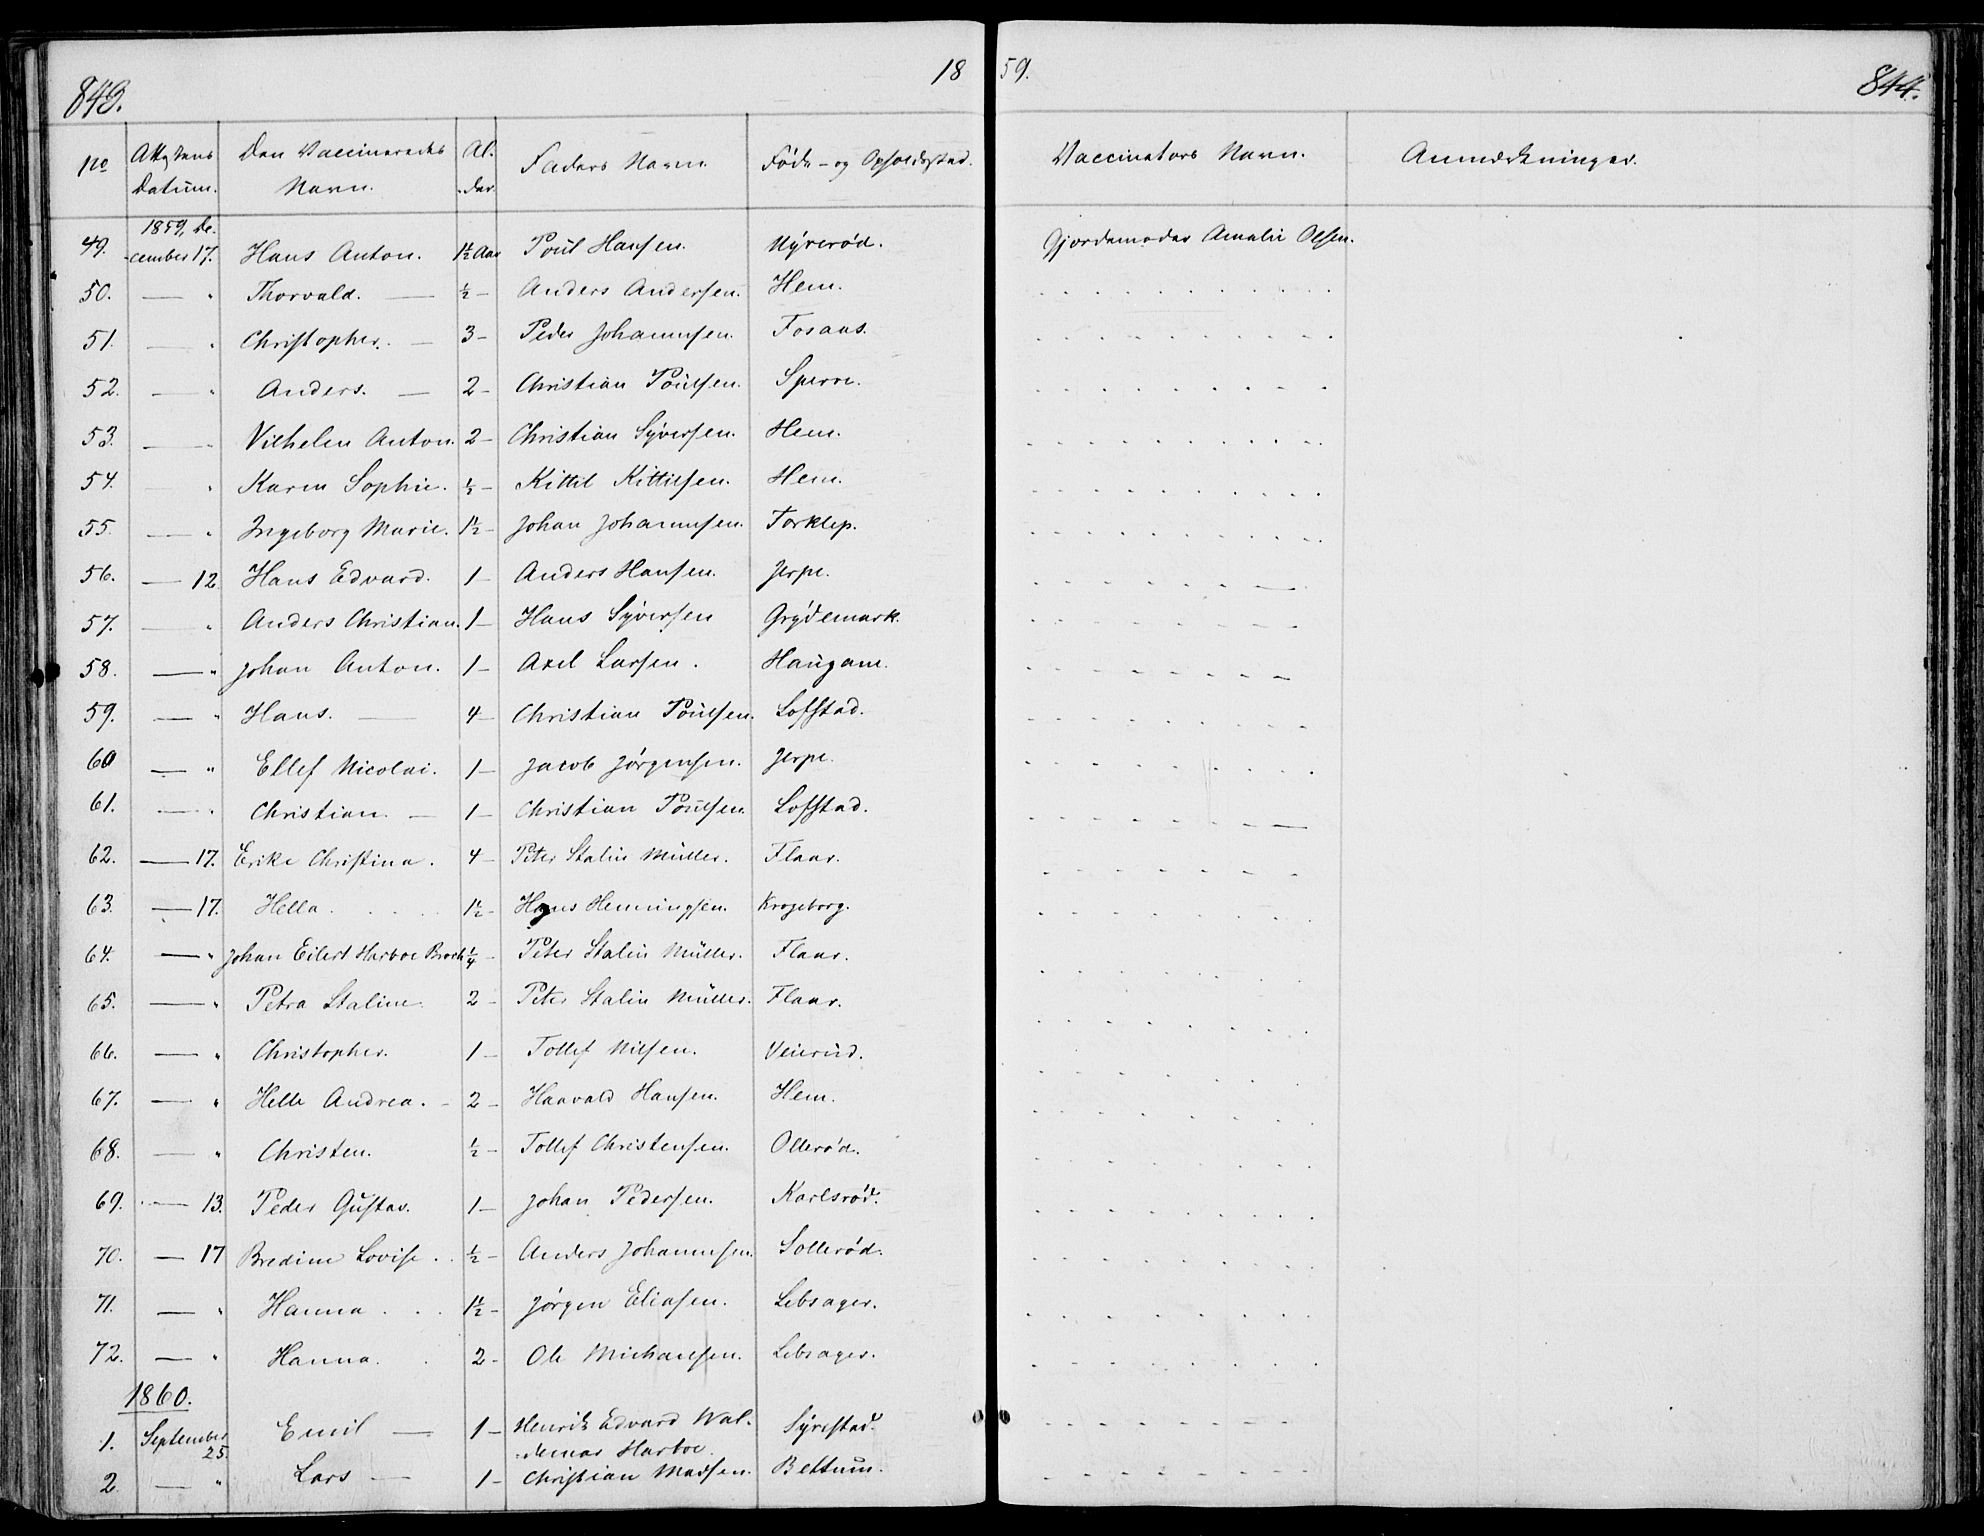 843.
18 59.
844.
No Attestens Datum. Den Vaccineredes Navn. Al-der. Faders Navn. Føde- og Opholdssted. Vaccinators Navn. Anmærkninger.
1859, De-
49. cember 17. Hans Anton. 1½ Aar Poul Hansen. Nÿrerød. Gjordemoder Amalie Olsen.
50. — " Thorvald. — ½ — Anders Andersen. Hem.
51. — " Christopher. — 3 — Peder Johannesen. Fosaas.
52. — " Anders. — 2 — Christian Poulsen. Sperre.
53. — " Vilhelm Anton. 2 — Christian Syversen. Hem.
54. — " Karen Sophie. ½ — Kittil Kittilsen. Hem.
55. — " Ingeborg Marie. 1½ — Johan Johannesen. Torklep.
56. — 12. Hans Edvard. 1 — Anders Hansen. Jerpe.
57. — " Anders Christian. 1 — Hans Syversen Grÿdemark.
58. — " Johan Anton. 1 — Axel Larsen. Haugane.
59. — " Hans. — 4 — Christian Poulsen. Lofstad.
60 — " Ellef Nicolai. 1 — Jacob Jørgensen. Jerpe.
61. — " Christian. — 1 — Christian Poulsen. Lofstad.
62. — 17. Erike Christina. 4 — Peter Stalin Müller. Flaar.
63. — 17. Hella. 1½ — Hans Henningsen. Krogeborg.
64. — " Johan Eilert Harboe Brock ¼ — Peter Stalin Müller. Flaar.
65. — " Petra Staline. 2 — Peter Stalin Müller. Flaar.
66. — " Christopher. 1 — Tollef Nilsen. Veierud.
67. — " Helle Andrea. — 2 — Haavald Hansen. Hem.
68. — " Christen. ½ — Tollef Christensen. Ollerød.
69. — 13. Peder Gustav. 1 — Johan Pedersen. Karlsrød.
70. — 17 Bredine Lovise. ½ — Anders Johannesen. Sollerød.
71. — " Hanna. 1½ — Jørgen Eliasen. Lebsager.
72. — " Hanna. 2 — Ole Michaelsen. Lebsager.
1860.
1. September 25. Emil — 1 — Henrik Edvard Wal- Syrestad.
demar Harboe.
2 — " Lars — 1 — Christian Madsen. Bettum.